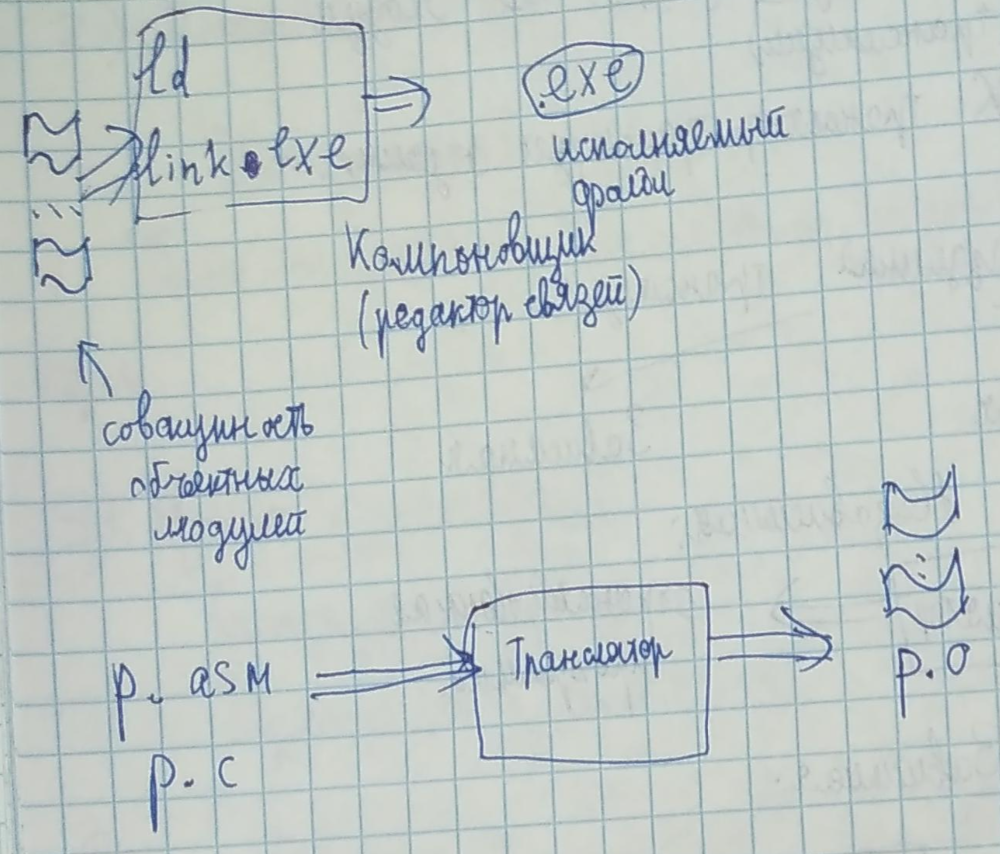 ld
link.exe
.exe
исполняемый
файл
Компоновщик
(редактор связей)
совокупность
объектных
модулей
p. asm
p. c
Транслятор
p. o